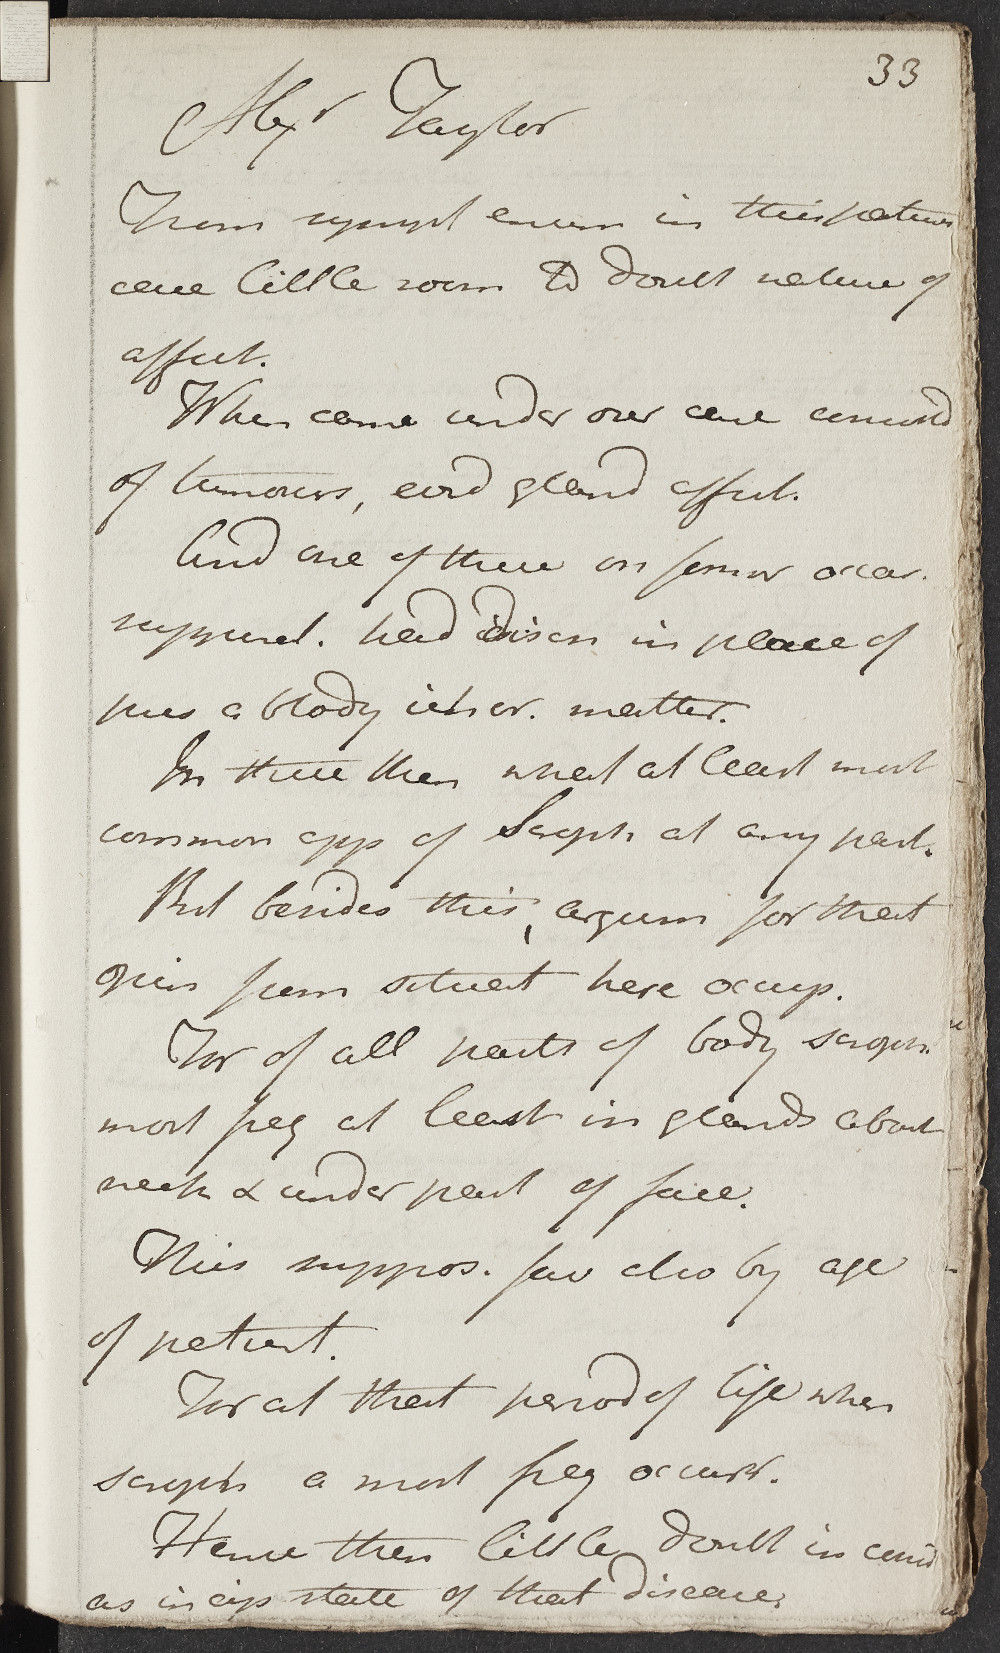 33
Alexr Taylor
From sympt enum in this patient
case little room to doubt nature of
affect.
When came under our care
of tumours, evid gland affect.
And one of these on former occas.
suppurat. had discn in place of
pus a blody ichor. matter.
In these then what at least most
common app of Scroph at any part.
But besides this, argum for that
opin from situat here occup.
For of all parts of body scroph.
most freq at least in glands about
neck & under part of face.
This suppos. fav also by age
of patient.
For at that period of life when
scroph a most freq occurr.
Hence then little doubt in consid
as incip state of that disease.